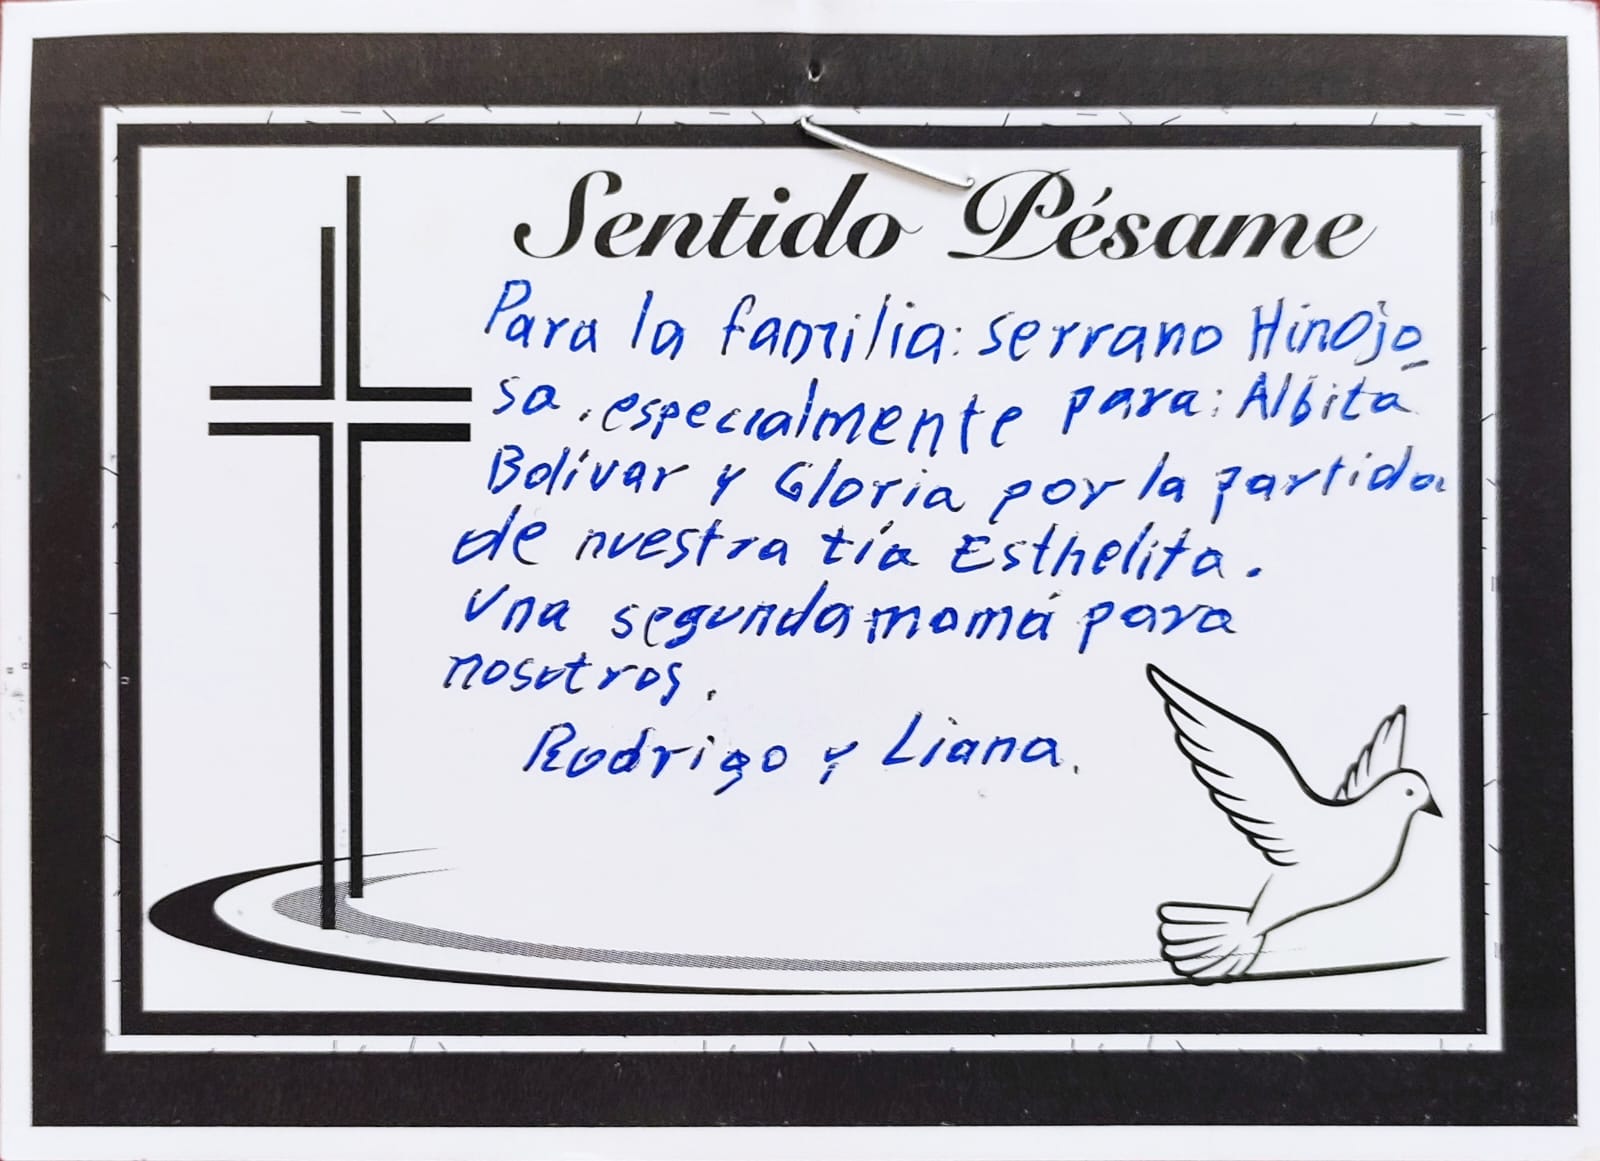 Sentido Pésame
Para la familia: Serrano Hinojo
sa. especialmente para: Albita
Bolívar y Gloria por la partida
de nuestra tía Esthelita.
Una segunda mamá para
nosotros.
Rodrigo y Liana.